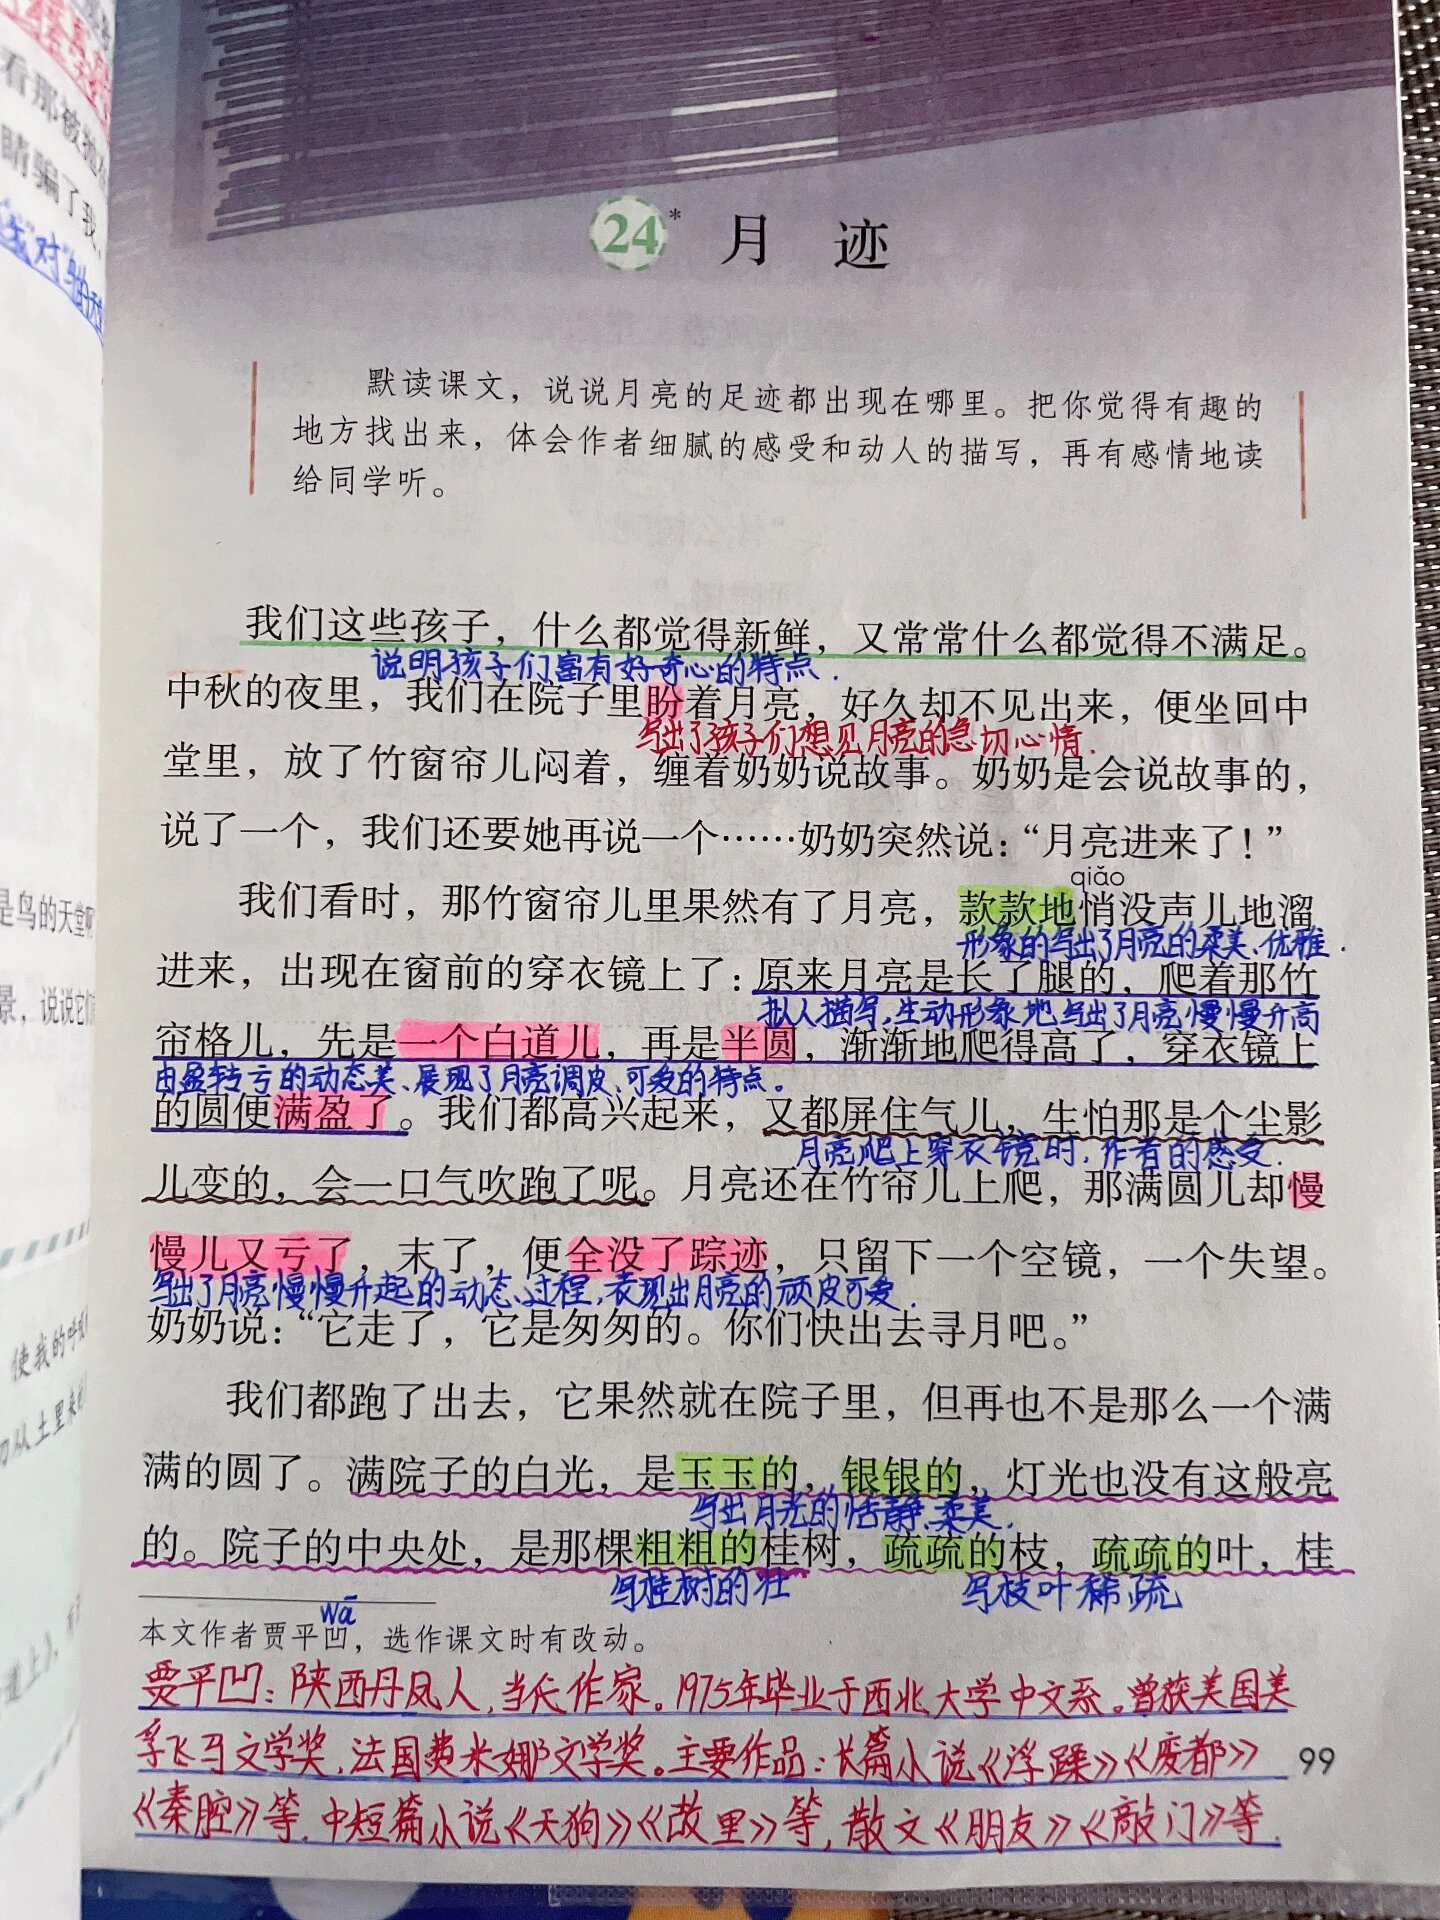 看那被抛
睛骗了我，
是鸟的天堂啊
景，说说它们
使我的呼
切从土里来的
道上），
24* 月迹
默读课文，说说月亮的足迹都出现在哪里。把你觉得有趣的
地方找出来，体会作者细腻的感受和动人的描写，再有感情地读
给同学听。
我们这些孩子，什么都觉得新鲜，又常常什么都觉得不满足。
说明孩子们富有好奇心的特点.
中秋的夜里，我们在院子里盼着月亮，好久却不见出来，便坐回中
写出了孩子们想见月亮的急切心情.
堂里，放了竹窗帘儿闷着，缠着奶奶说故事。奶奶是会说故事的，
说了一个，我们还要她再说一个……奶奶突然说：“月亮进来了！”
qiǎo
我们看时，那竹窗帘儿里果然有了月亮，款款地悄没声儿地溜
形象的写出了月亮的柔美、优雅.
进来，出现在窗前的穿衣镜上了：原来月亮是长了腿的，爬着那竹
拟人描写，生动形象地写出了月亮慢慢升高
帘格儿，先是一个白道儿，再是半圆，渐渐地爬得高了，穿衣镜上
由盈转亏的动态美、展现了月亮调皮、可爱的特点。
的圆便满盈了。我们都高兴起来，又都屏住气儿，生怕那是个尘影
月亮爬上穿衣镜时，作者的感受.
儿变的，会一口气吹跑了呢。月亮还在竹帘儿上爬，那满圆儿却慢
慢儿又亏了，末了，便全没了踪迹，只留下一个空镜，一个失望。
写出了月亮慢慢升起的动态、过程，表现出月亮的顽皮可爱.
奶奶说：“它走了，它是匆匆的。你们快出去寻月吧。”
我们都跑了出去，它果然就在院子里，但再也不是那么一个满
满的圆了。满院子的白光，是玉玉的，银银的，灯光也没有这般亮
写出月光的恬静、柔美.
的。院子的中央处，是那棵粗粗的桂树，疏疏的枝，疏疏的叶，桂
写桂树的壮
写枝叶稀疏
wā
本文作者贾平凹，选作课文时有改动。
贾平凹：陕西丹凤人，当代作家。1975年毕业于西北大学中文系。曾获美国美
孚飞马文学奖，法国费米娜文学奖。主要作品：长篇小说《浮躁》《废都》
《秦腔》等，中短篇小说《天狗》《故里》等，散文《朋友》《敲门》等.
99